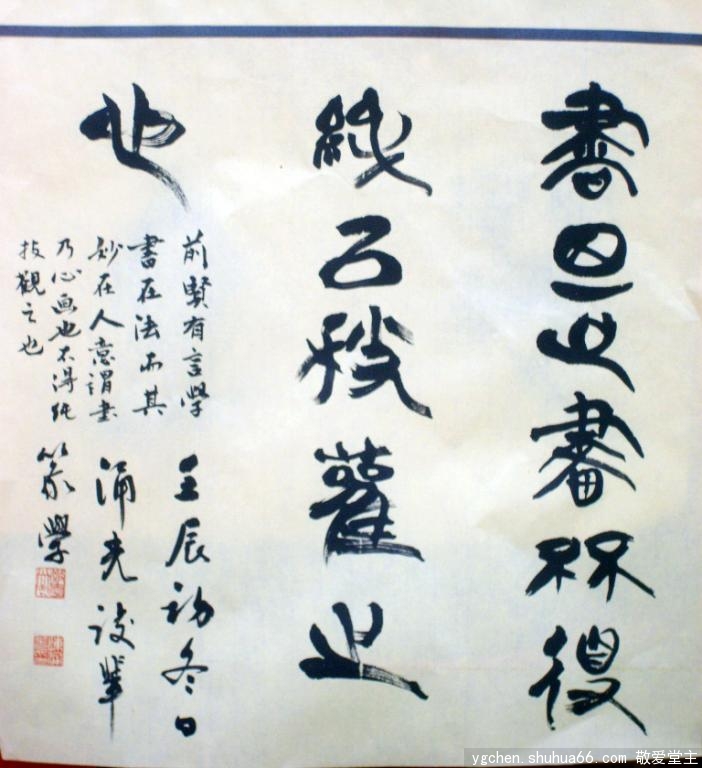 書之畫不得
純以技觀之
也
前賢有言學
書在法而其
妙在人意謂書
乃心画也不得純
技觀之也
壬辰初冬日
涌光
篆學
ygchen.shuhua66.com 敬爱堂主